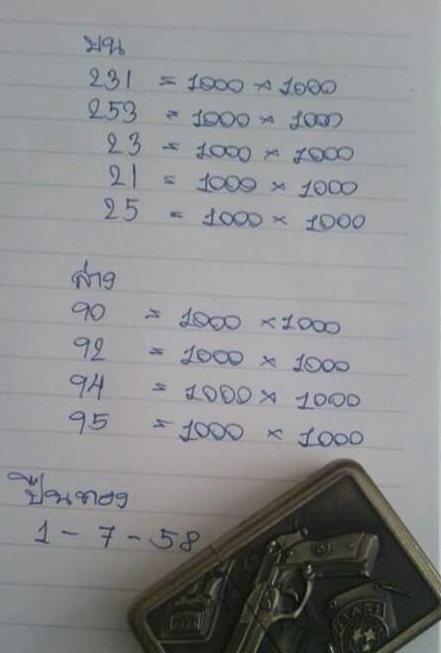 บน
231 = 1000 × 1000
253 = 1000 × 1000
23 = 1000 × 1000
21 = 1000 × 1000
25 = 1000 × 1000
ล่าง
90 = 1000 × 1000
92 = 1000 × 1000
94 = 1000 × 1000
95 = 1000 × 1000
ปืนทอง
1 - 7 - 58